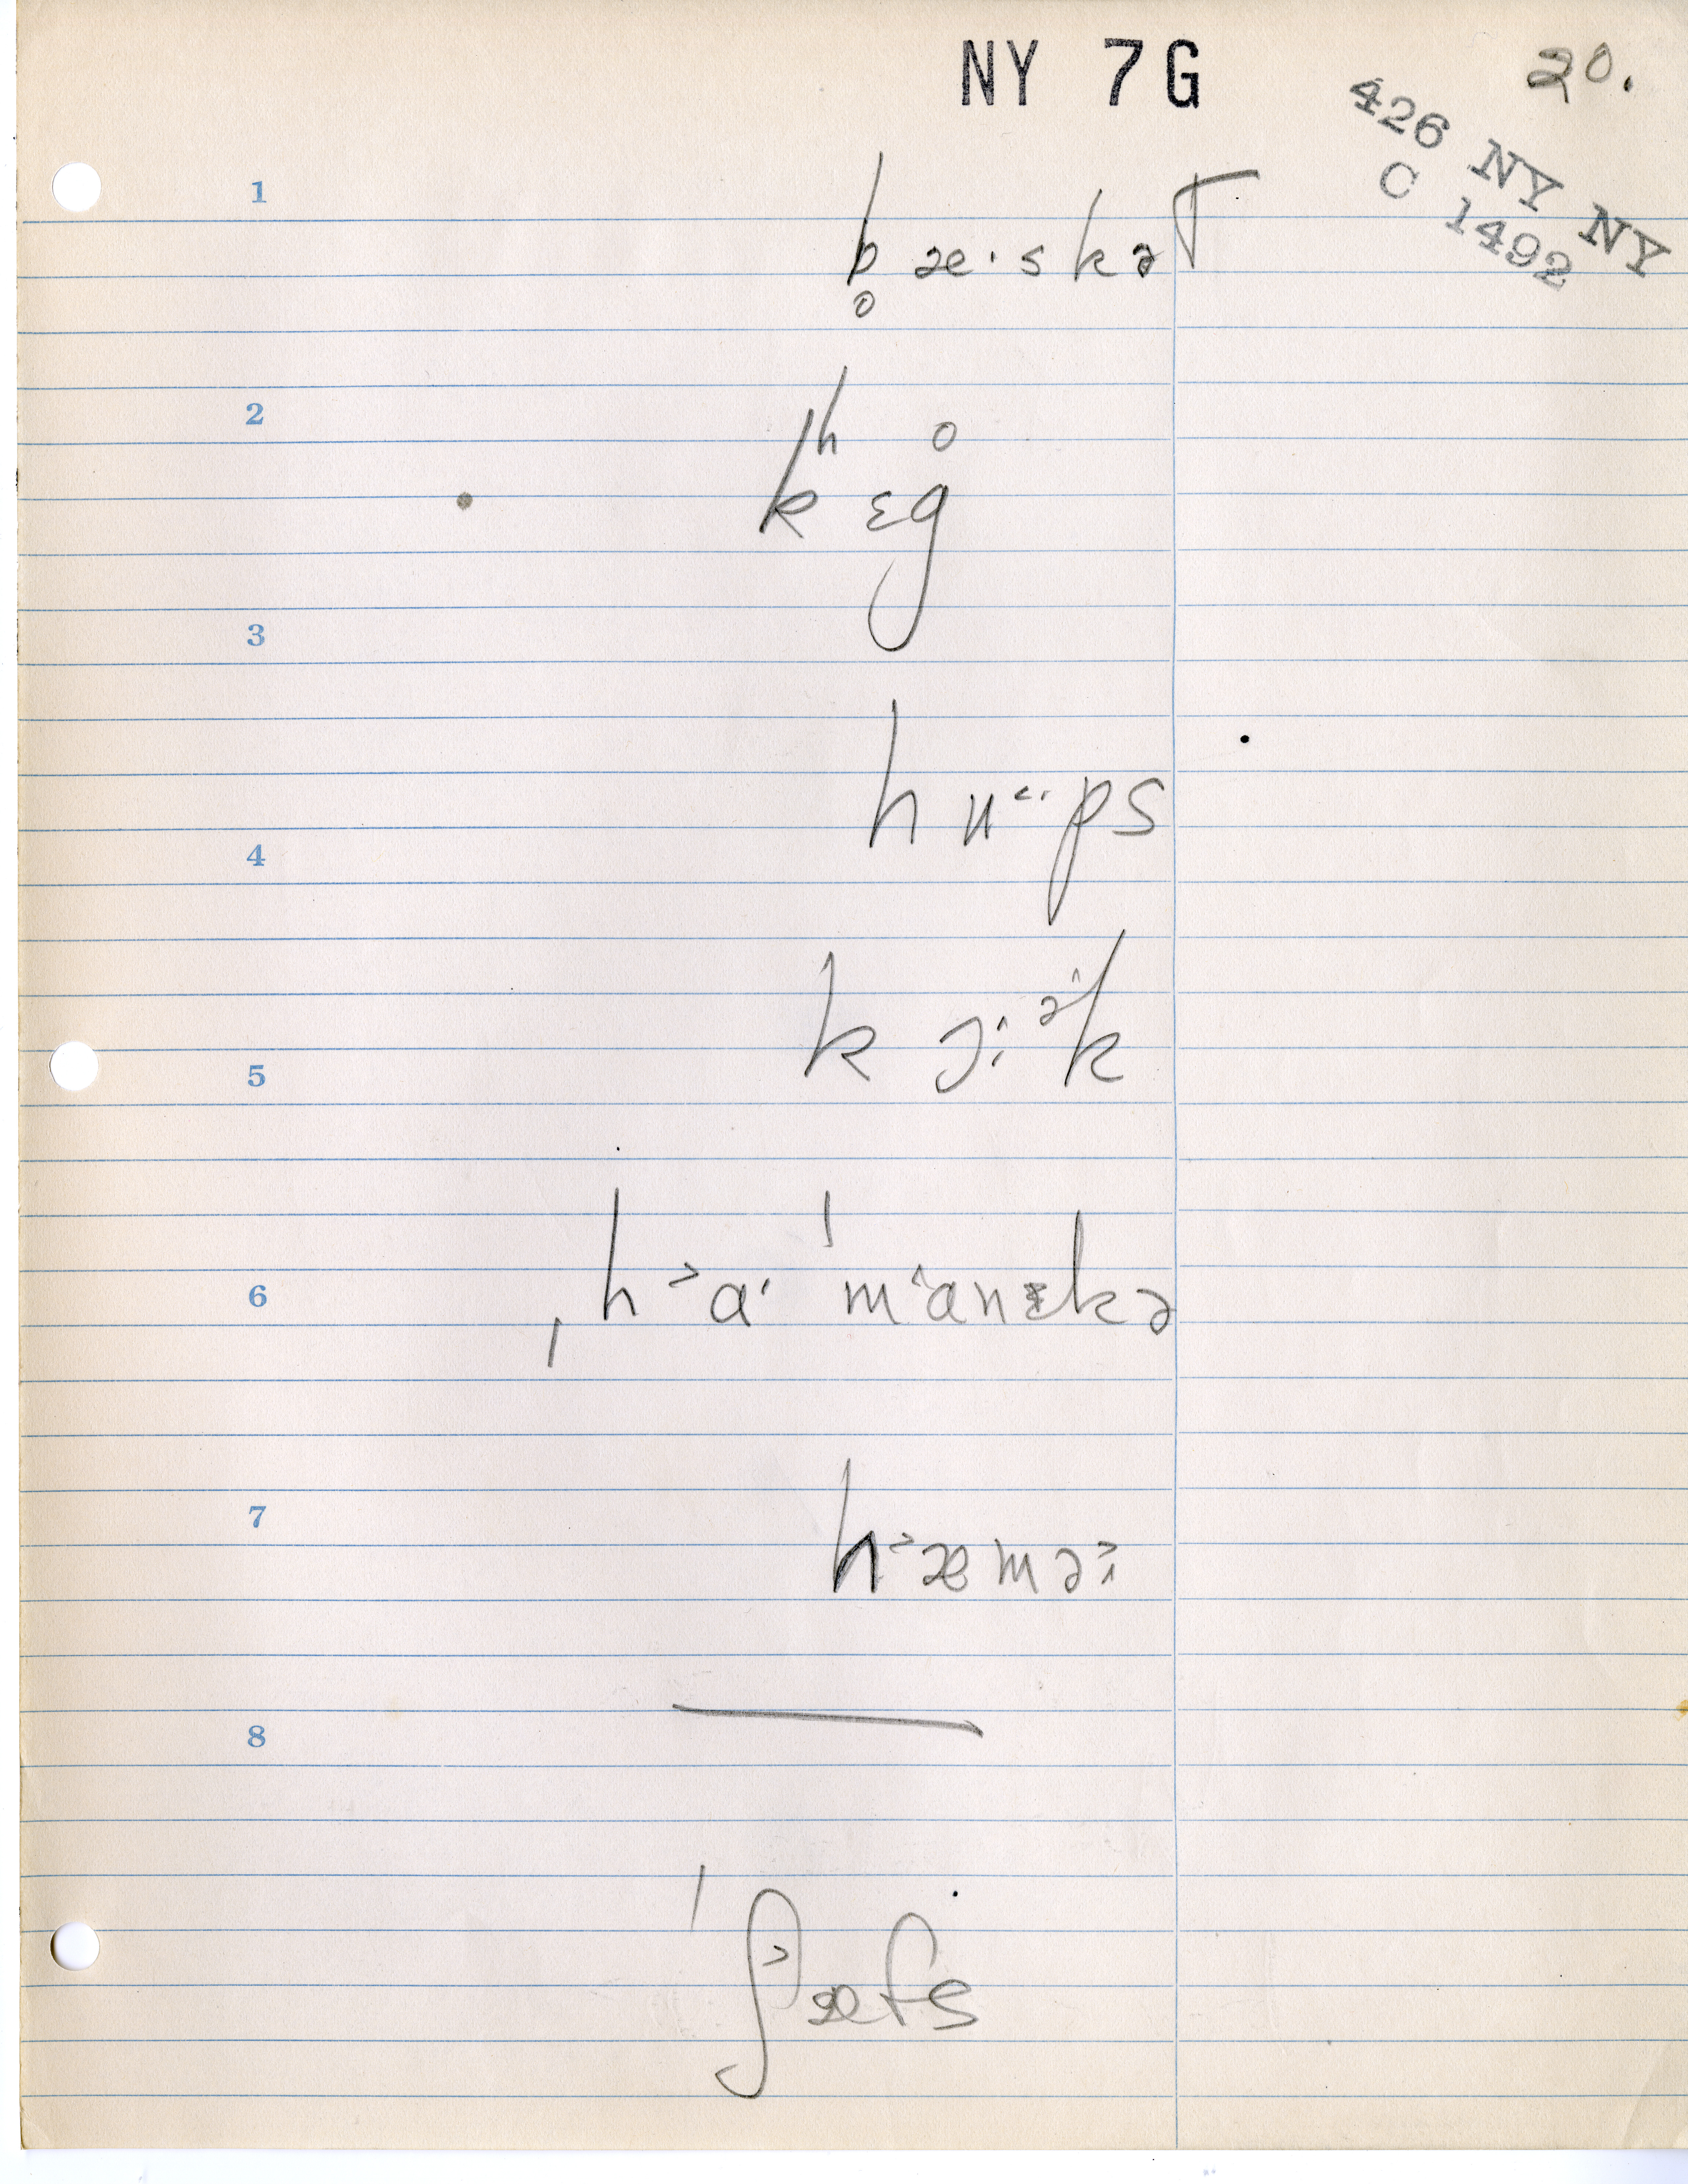 NY 7G
20.
426 NY NY
C 1492
1
b̥ æ·skəT
2
kʰ ɛg̊
3
h ʉ˂·ps
4
k ɔ:ᵊ˄k
5
ˌh˃ɑ· ˈm˂anɪkə
6
h˃æmə˃:
7
—
8
ˈʃ˃æfs